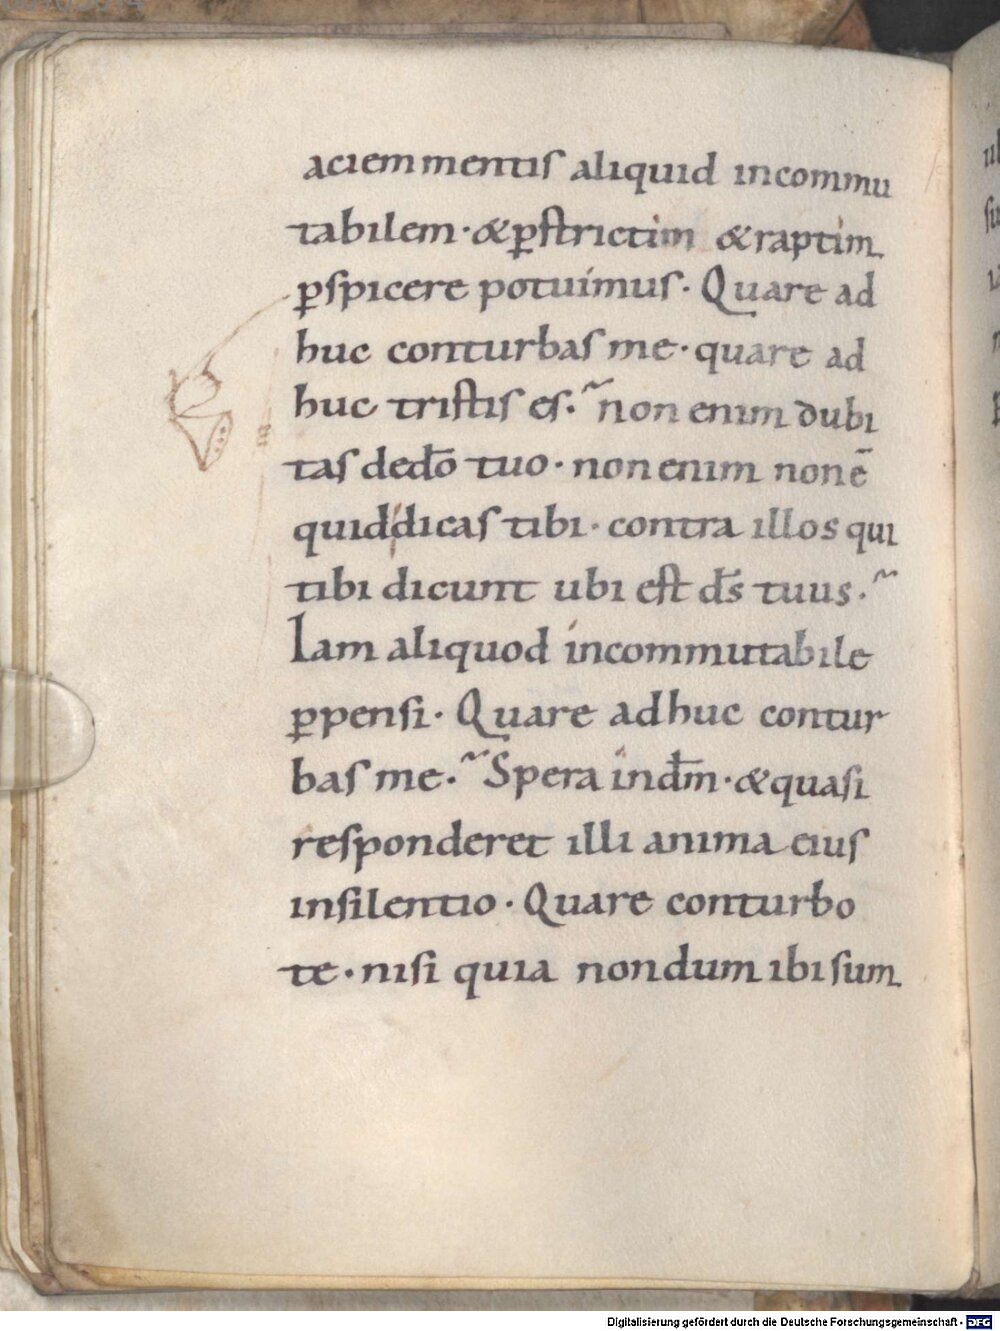 aciem mentis aliquid incommu
tabilem · & ꝑstrictim & raptim
ꝑspicere potuimus · Quare ad
huc conturbas me · quare ad
huc tristis es ·~ non enim dubi
tas de dō tuo · non enim non ē
quid dicas tibi · contra illos qui
tibi dicunt ubi est ds̄ tuus ·~
Iam aliquod incommutabile
ꝑpensi · Quare adhuc contur
bas me ·~ Spera in dm̄ · & quasi
responderet illi anima eius
in silentio · Quare conturbo
te · nisi quia nondum ibi sum
Digitalisierung gefördert durch die Deutsche Forschungsgemeinschaft - DFG